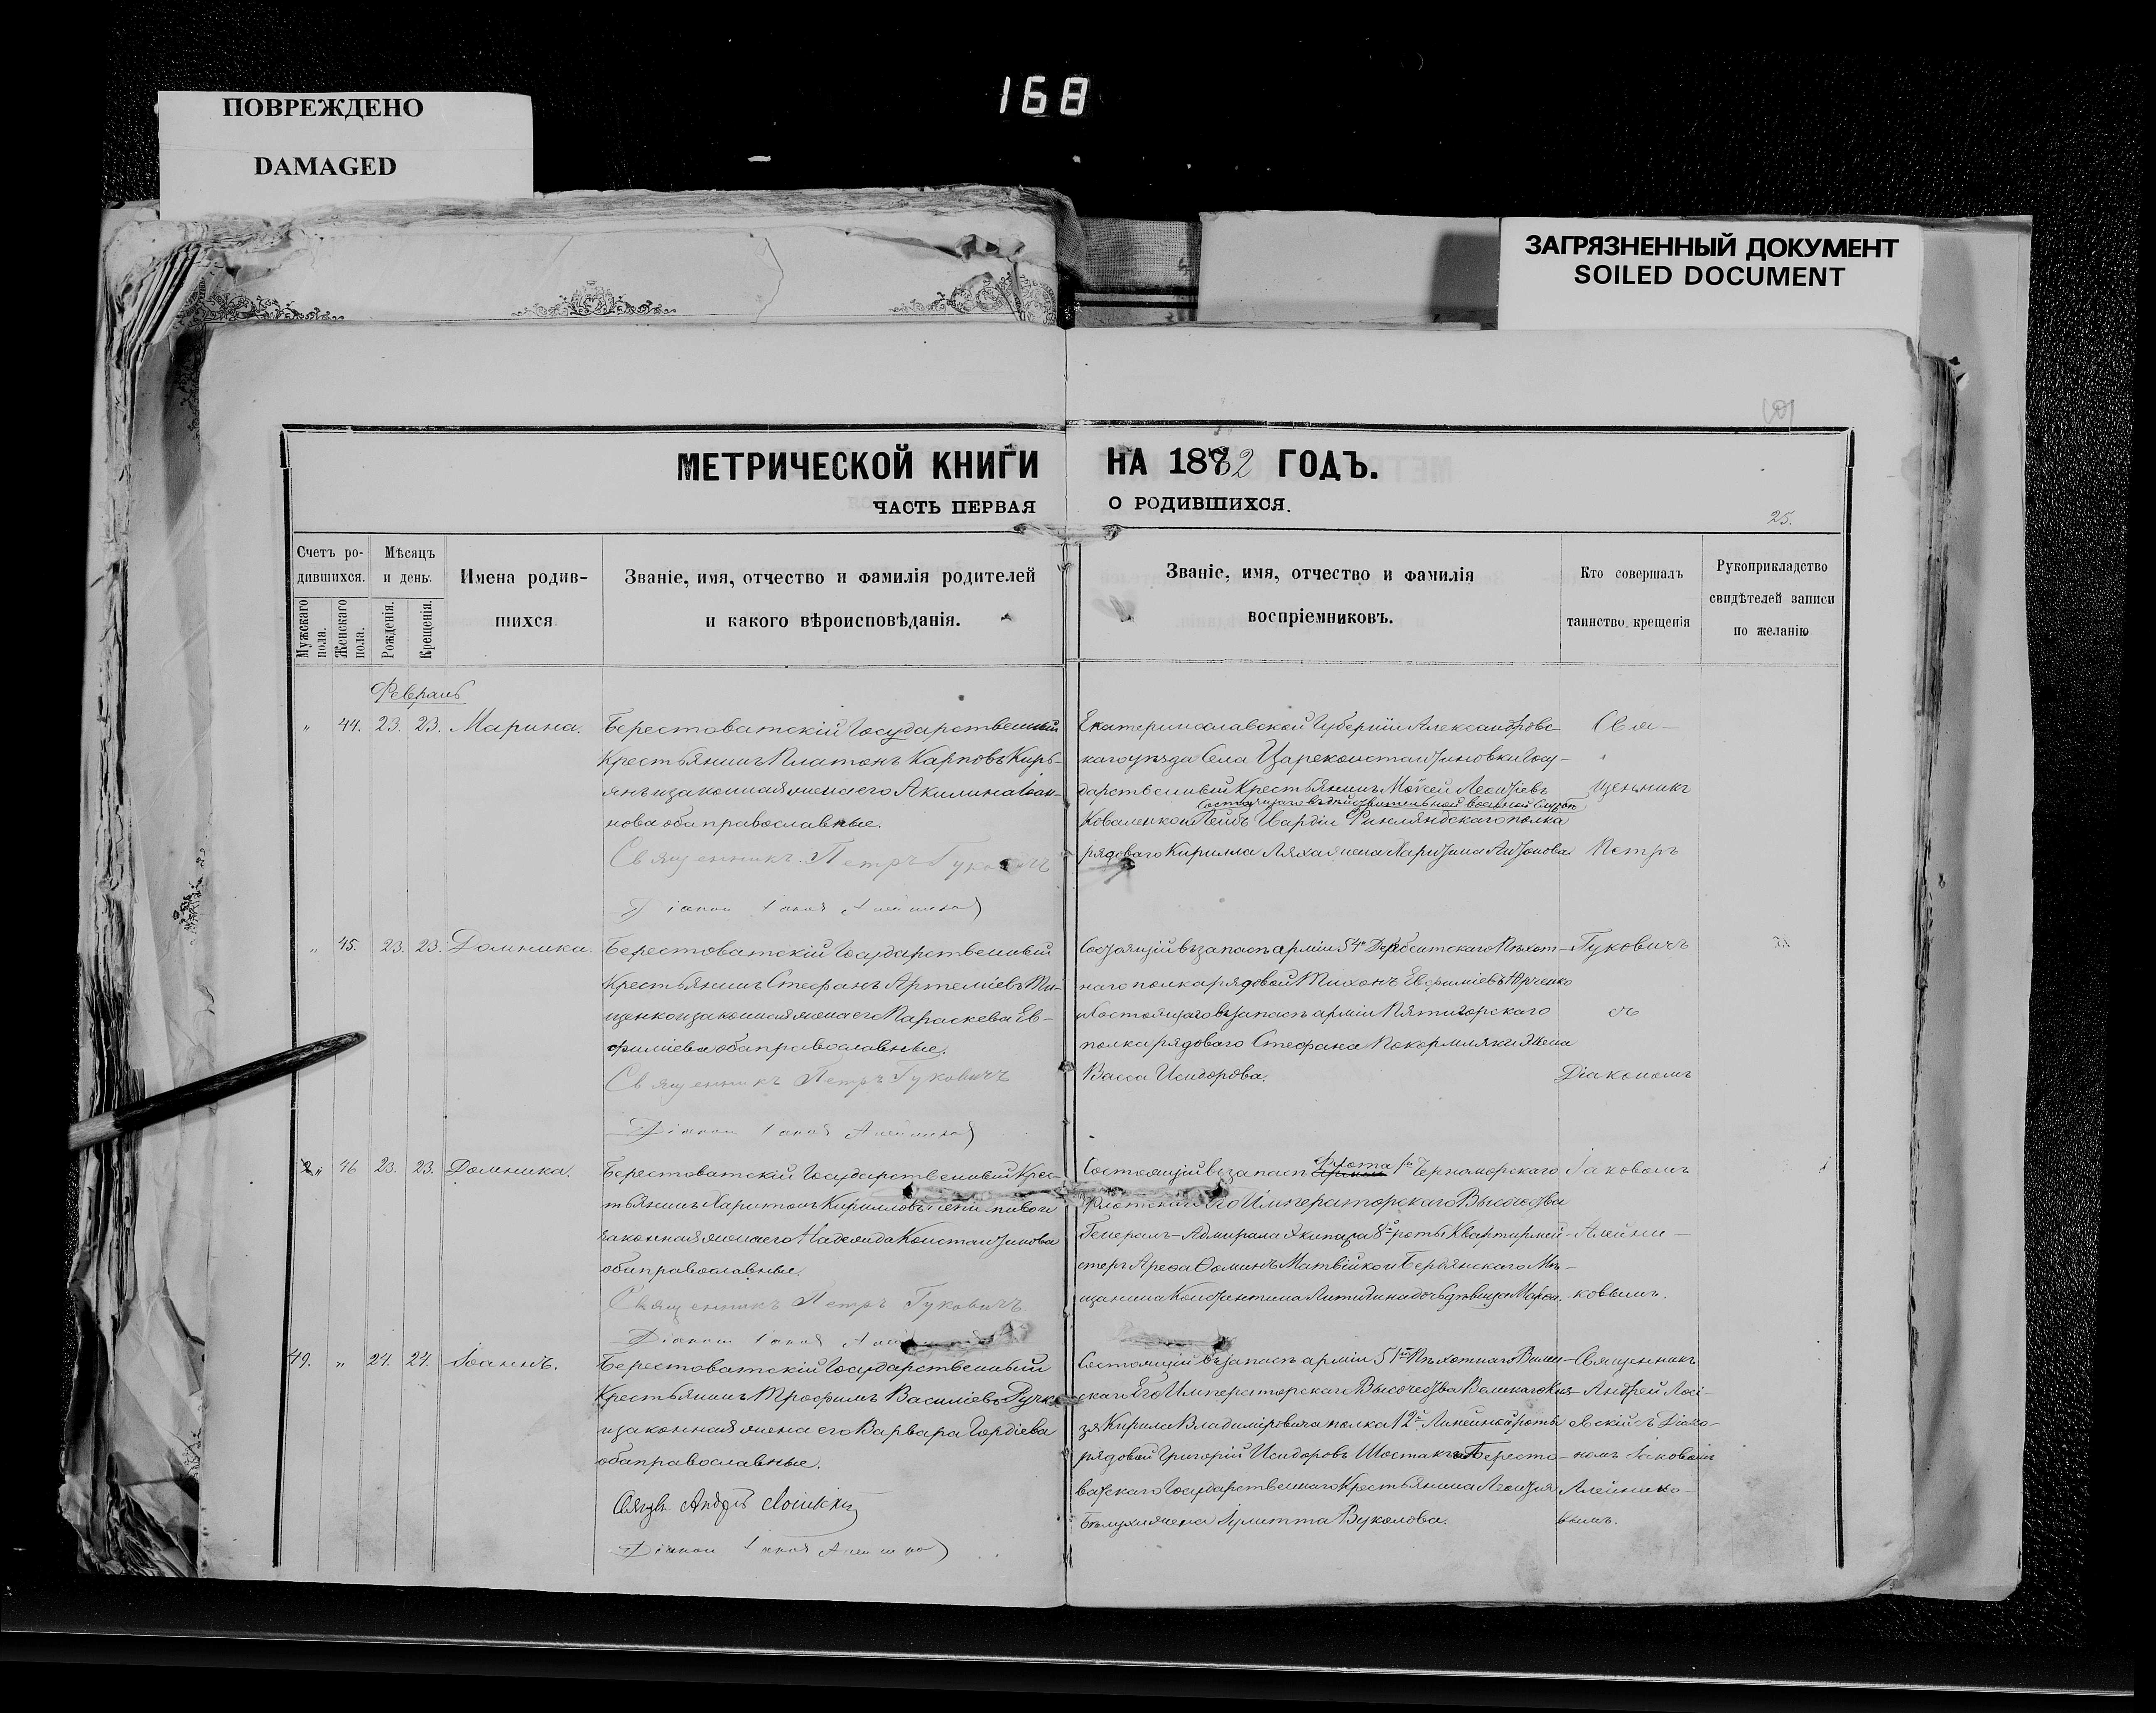 168
ПОВРЕЖДЕНО
DAMAGED
ЗАГРЯЗНЕННЫЙ ДОКУМЕНТ
SOILED DOCUMENT
МЕТРИЧЕСКОЙ КНИГИ НА 1882 ГОДЪ.
ЧАСТЬ ПЕРВАЯ О РОДИВШИХСЯ.
25.
Счетъ ро-
дившихся.
Мужскаго пола.
Женскаго пола.
Мѣсяцъ
и день.
Рожденія.
Крещенія.
Имена родив-
шихся
Званіе, имя, отчество и фамилія родителей
и какого вѣроисповѣданія.
Званіе, имя, отчество и фамилія
воспріемниковъ.
Кто совершалъ
таинство крещенія
Рукоприкладство
свидѣтелей записи
по желанію
Февраль
" 44. 23. 23. Марина.
Берестоватскій Государственный
Крестьянинъ Платонъ Карповъ Кирь-
янъ и законная жена его Акилина Іоан-
нова оба православные.
Священникъ Петръ Гуковичъ
Діаконъ Іаковъ
Екатеринославской Губерніи Александровс-
каго уѣзда Села Цареконстантиновки Госу-
дарственный Крестьянинъ Мойсей Леонтіевъ
состоящаго въ дѣйствительной военной службѣ
Коваленко и Лейбъ Гвардіи Финляндскаго полка
рядоваго Кирилла Ляха жена Харитина Антонова
Свя-
щенникъ
Петръ
" 45. 23. 23. Домника.
Берестоватскій Государственный
Крестьянинъ Стефанъ Артеміевъ Ти-
щенко и законная жена его Параскева Ев-
фиміева оба православные.
Священникъ Петръ Гуковичъ
Діаконъ Іаковъ
Состоящій въ запасѣ арміи 54го Пѣхот-
наго полка рядовой Тихонъ Евфиміевъ Юрченко
и Состоящаго въ запасѣ арміи Пятигорскаго
полка рядоваго Стефана Покормляки Жена
Васса Исидорова.
Гуковичъ
съ
Діакономъ
" 46 23. 23. Домника.
Берестоватскій Государственный Крес-
тьянинъ Харитонъ Кирилловъ
законная жена его Надежда Константинова
оба православные.
Священникъ Петръ Гуковичъ
Діаконъ Іаковъ
Состоящій въ запасѣ флота 1го Черноморскаго
Флотскаго Его Императорскаго Высочества
Генералъ-Адмирала Экипажа 8й роты Квартирмей-
стеръ Арефа Ѳоминъ Матвійко и Бердянскаго Мѣ-
щанина Константина дочь дѣвица
Іаковомъ
Алейни-
ковымъ.
49. " 24. 24. Іоаннъ.
Берестоватскій Государственный
Крестьянинъ Трофимъ Василіевъ Ручка
и законная жена его Варвара Гордіева
оба православные.
Діаконъ Іаковъ
Состоящій въ запасѣ арміи 51го Пѣхотнаго
скаго Его Императорскаго Высочества Великаго Кня-
зя Кирила Владиміровича полка 12й Линейной роты
рядовой Григорій Исидоровъ Шостакъ и Бересто-
ватскаго Государственнаго Крестьянина Леонтія
жена Іулитта Вуколова.
Священникъ
Андрей
съ Діако-
номъ Іаковомъ
Алейнико-
вымъ.